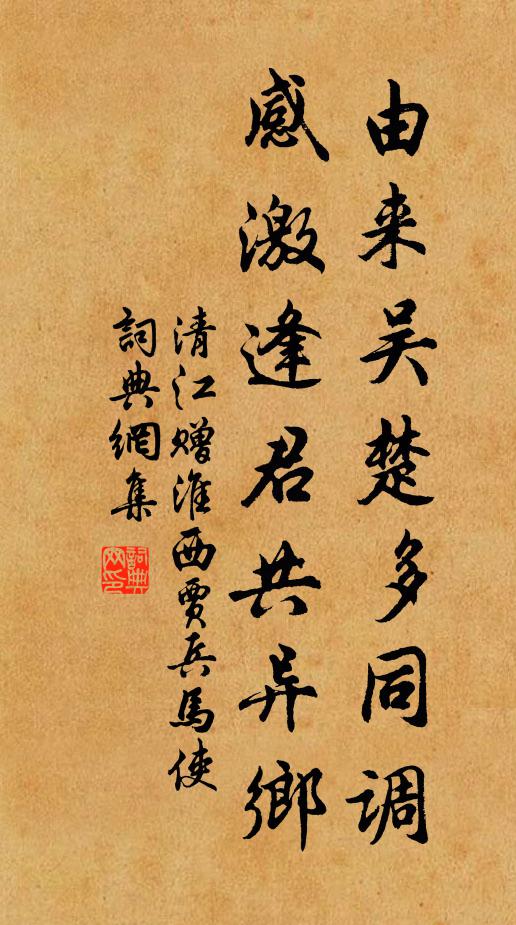 由来吴楚多同调
感激逢君共异鄉
清江赠淮西賈兵馬使
詞典網集
詞典網印